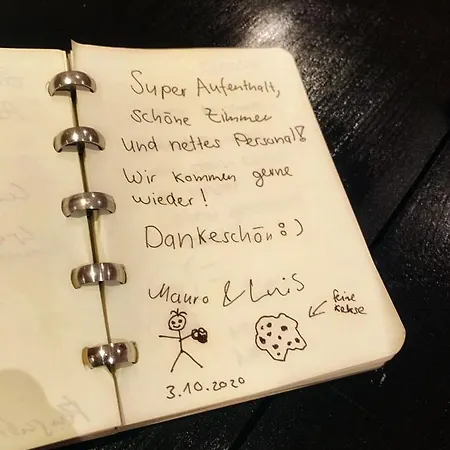 Super Aufenthalt,
schöne Zimmer
und nettes Personal!
Wir kommen gerne
wieder!
Dankeschön :)
Mauro & Luis
feine
Kekse
3.10.2020